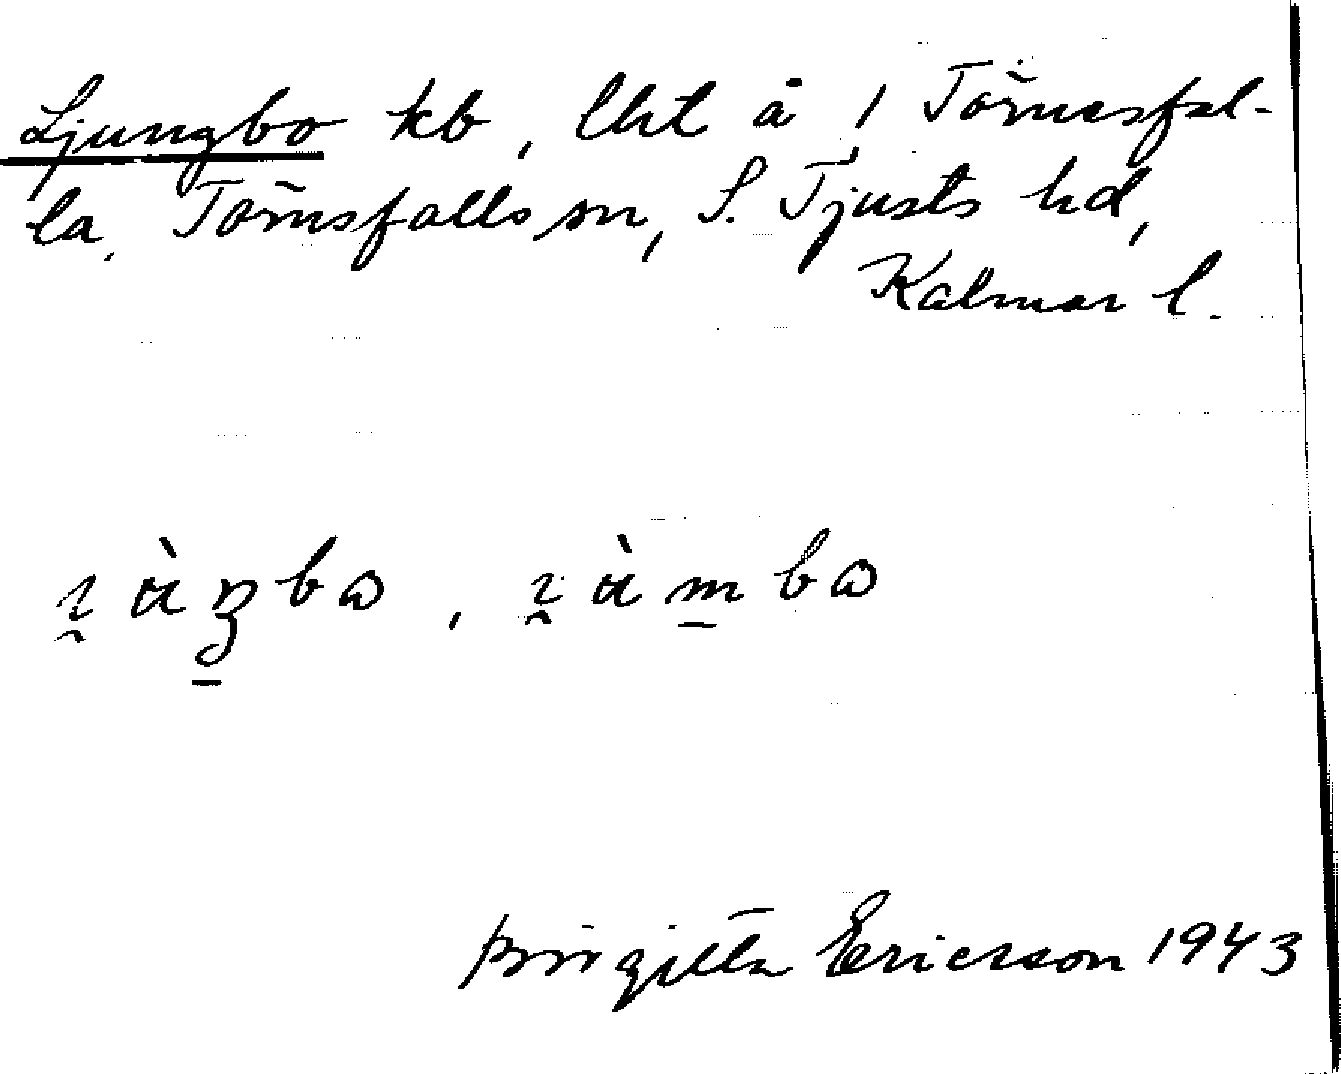 Ljungbo kb, lht å 1 Törnesfal-
la, Törnsfalls sn, S. Tjusts hd,
Kalmar l.
Birgitta Ericsson 1943